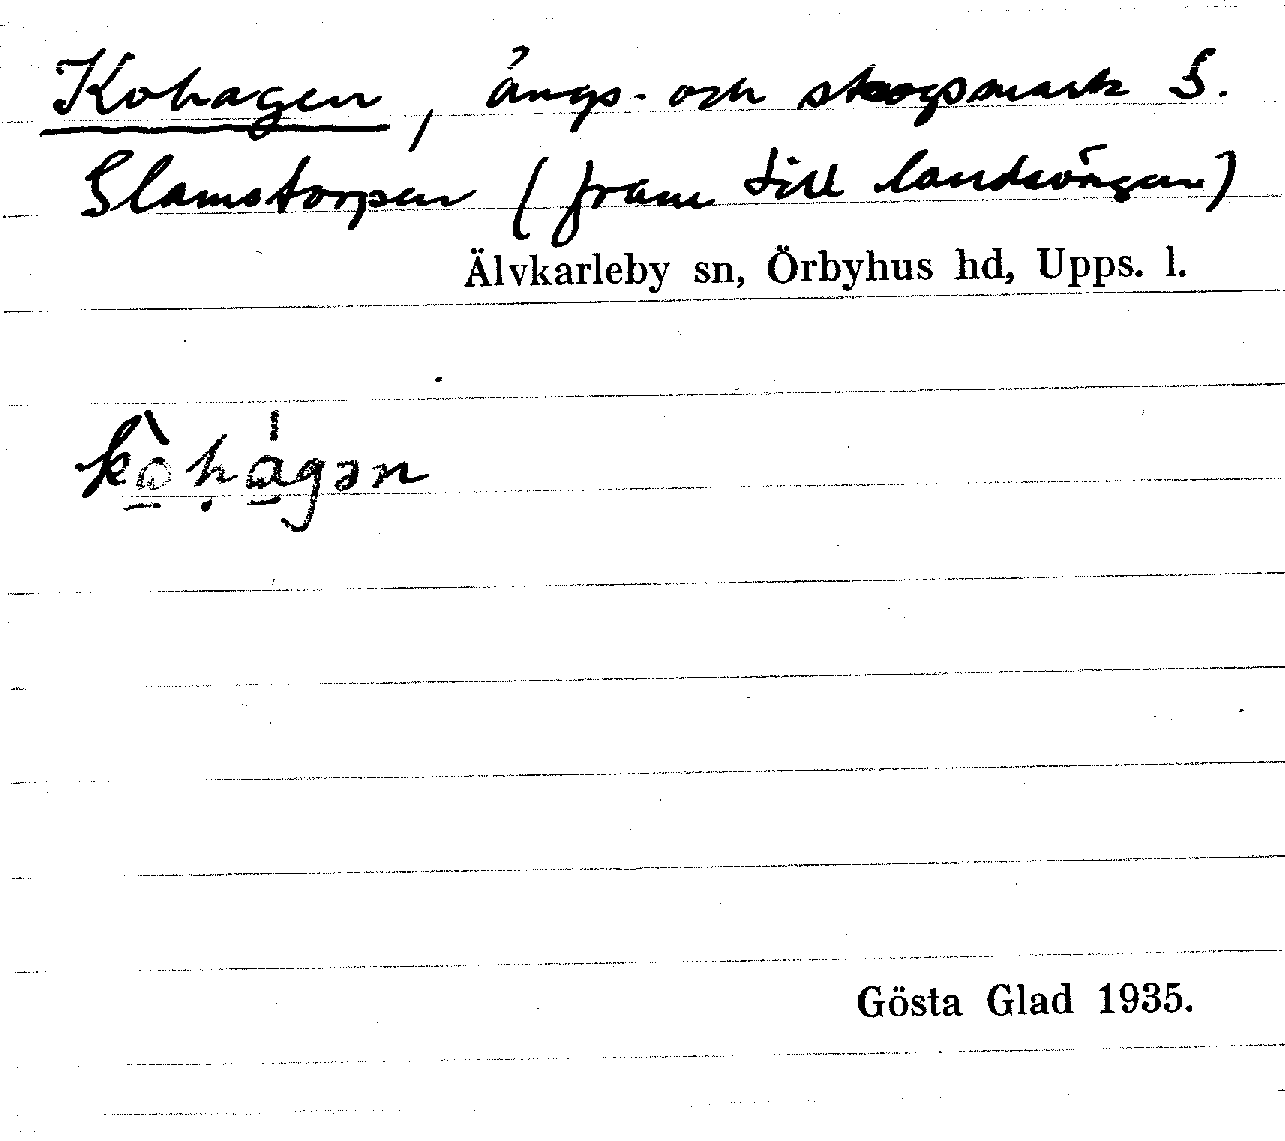 Kohagen, ängs- och skogsmark S.
Slamstorpen (fram till landsvägen)
Älvkarleby sn, Örbyhus hd, Upps. l.
kò̠ḥa̠̍gən
Gösta Glad 1935.